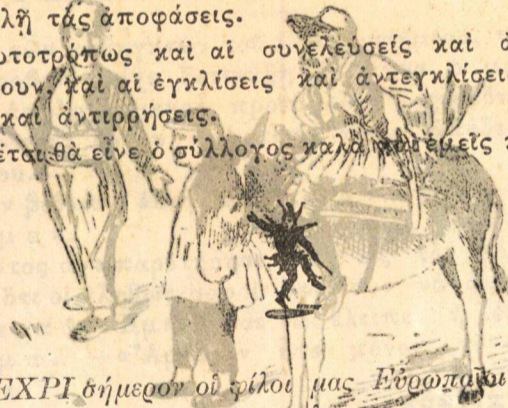 λῇ τὰς ἀποφάσεις.
υτοτρόπως καὶ αἱ συνελεύσεις καὶ
ουν, καὶ αἱ ἐγκλίσεις καὶ ἀντεγκλίσει
καὶ ἀντιρρήσεις.
εται θὰ εἶνε ὁ σύλλογος καλὰ καὶ ἐμεῖς
ΕΧΡΙ σήμερον οἱ φίλοι μας Εὐρωπαῖοι